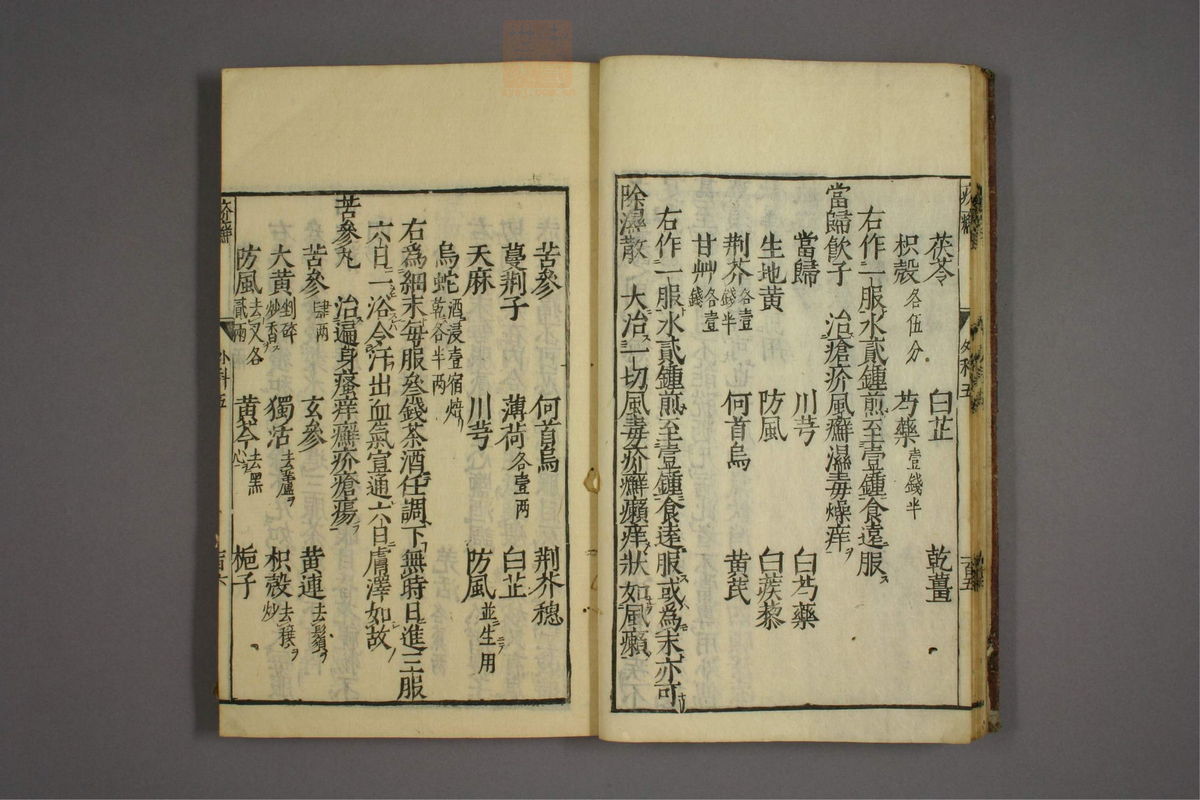 茯苓 白芷 乾薑
枳殼各伍分 芍藥壹錢半
右作一服水貳鍾煎至壹鍾食遠服
當歸飲子 治瘡疥風癬濕毒燥痒ヲ
當歸 川芎 白芍藥
生地黃 防風 白蒺藜
荊芥各壹錢半 何首烏 黃芪
甘艸各壹錢
右作一服水貳鍾煎至壹鍾食遠服或為末亦可
除濕散 大治一切風毒疥癬癩痒狀如風癩
苦參 何首烏 荊芥穗
蔓荊子 薄荷各壹兩 白芷
天麻 川芎 防風並生用
烏蛇酒浸壹宿焙乾各半兩
右為細末每服叄錢茶酒任調下無時日進三服
六日一浴令汗出血氣宣通六日膚澤如故
苦參丸 治遍身瘙痒癬疥瘡瘍ヲ
苦參肆兩 玄參 黃連去鬚ヲ
大黃剉碎炒香 獨活去蘆ヲ 枳殼去穰炒
防風去叉各貳兩 黃芩去黑心 梔子
外科五
百五
外科五